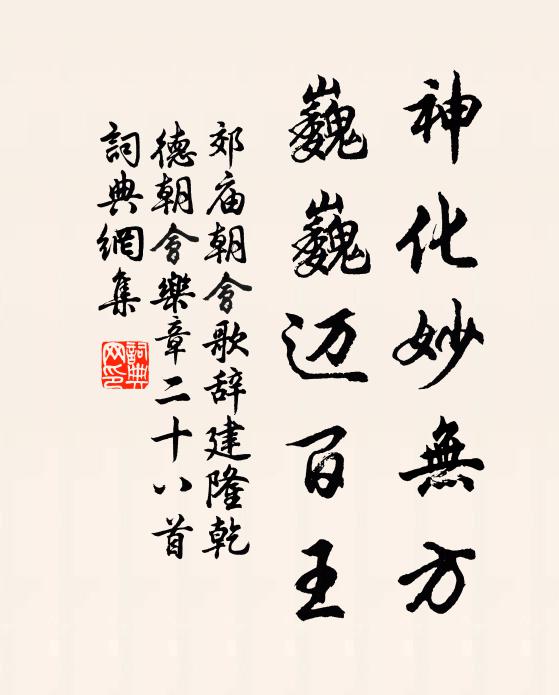 神化妙無方
巍巍迈百王
郊庙朝會歌辞建隆乾
德朝會樂章二十八首
詞典網集
詞典网印